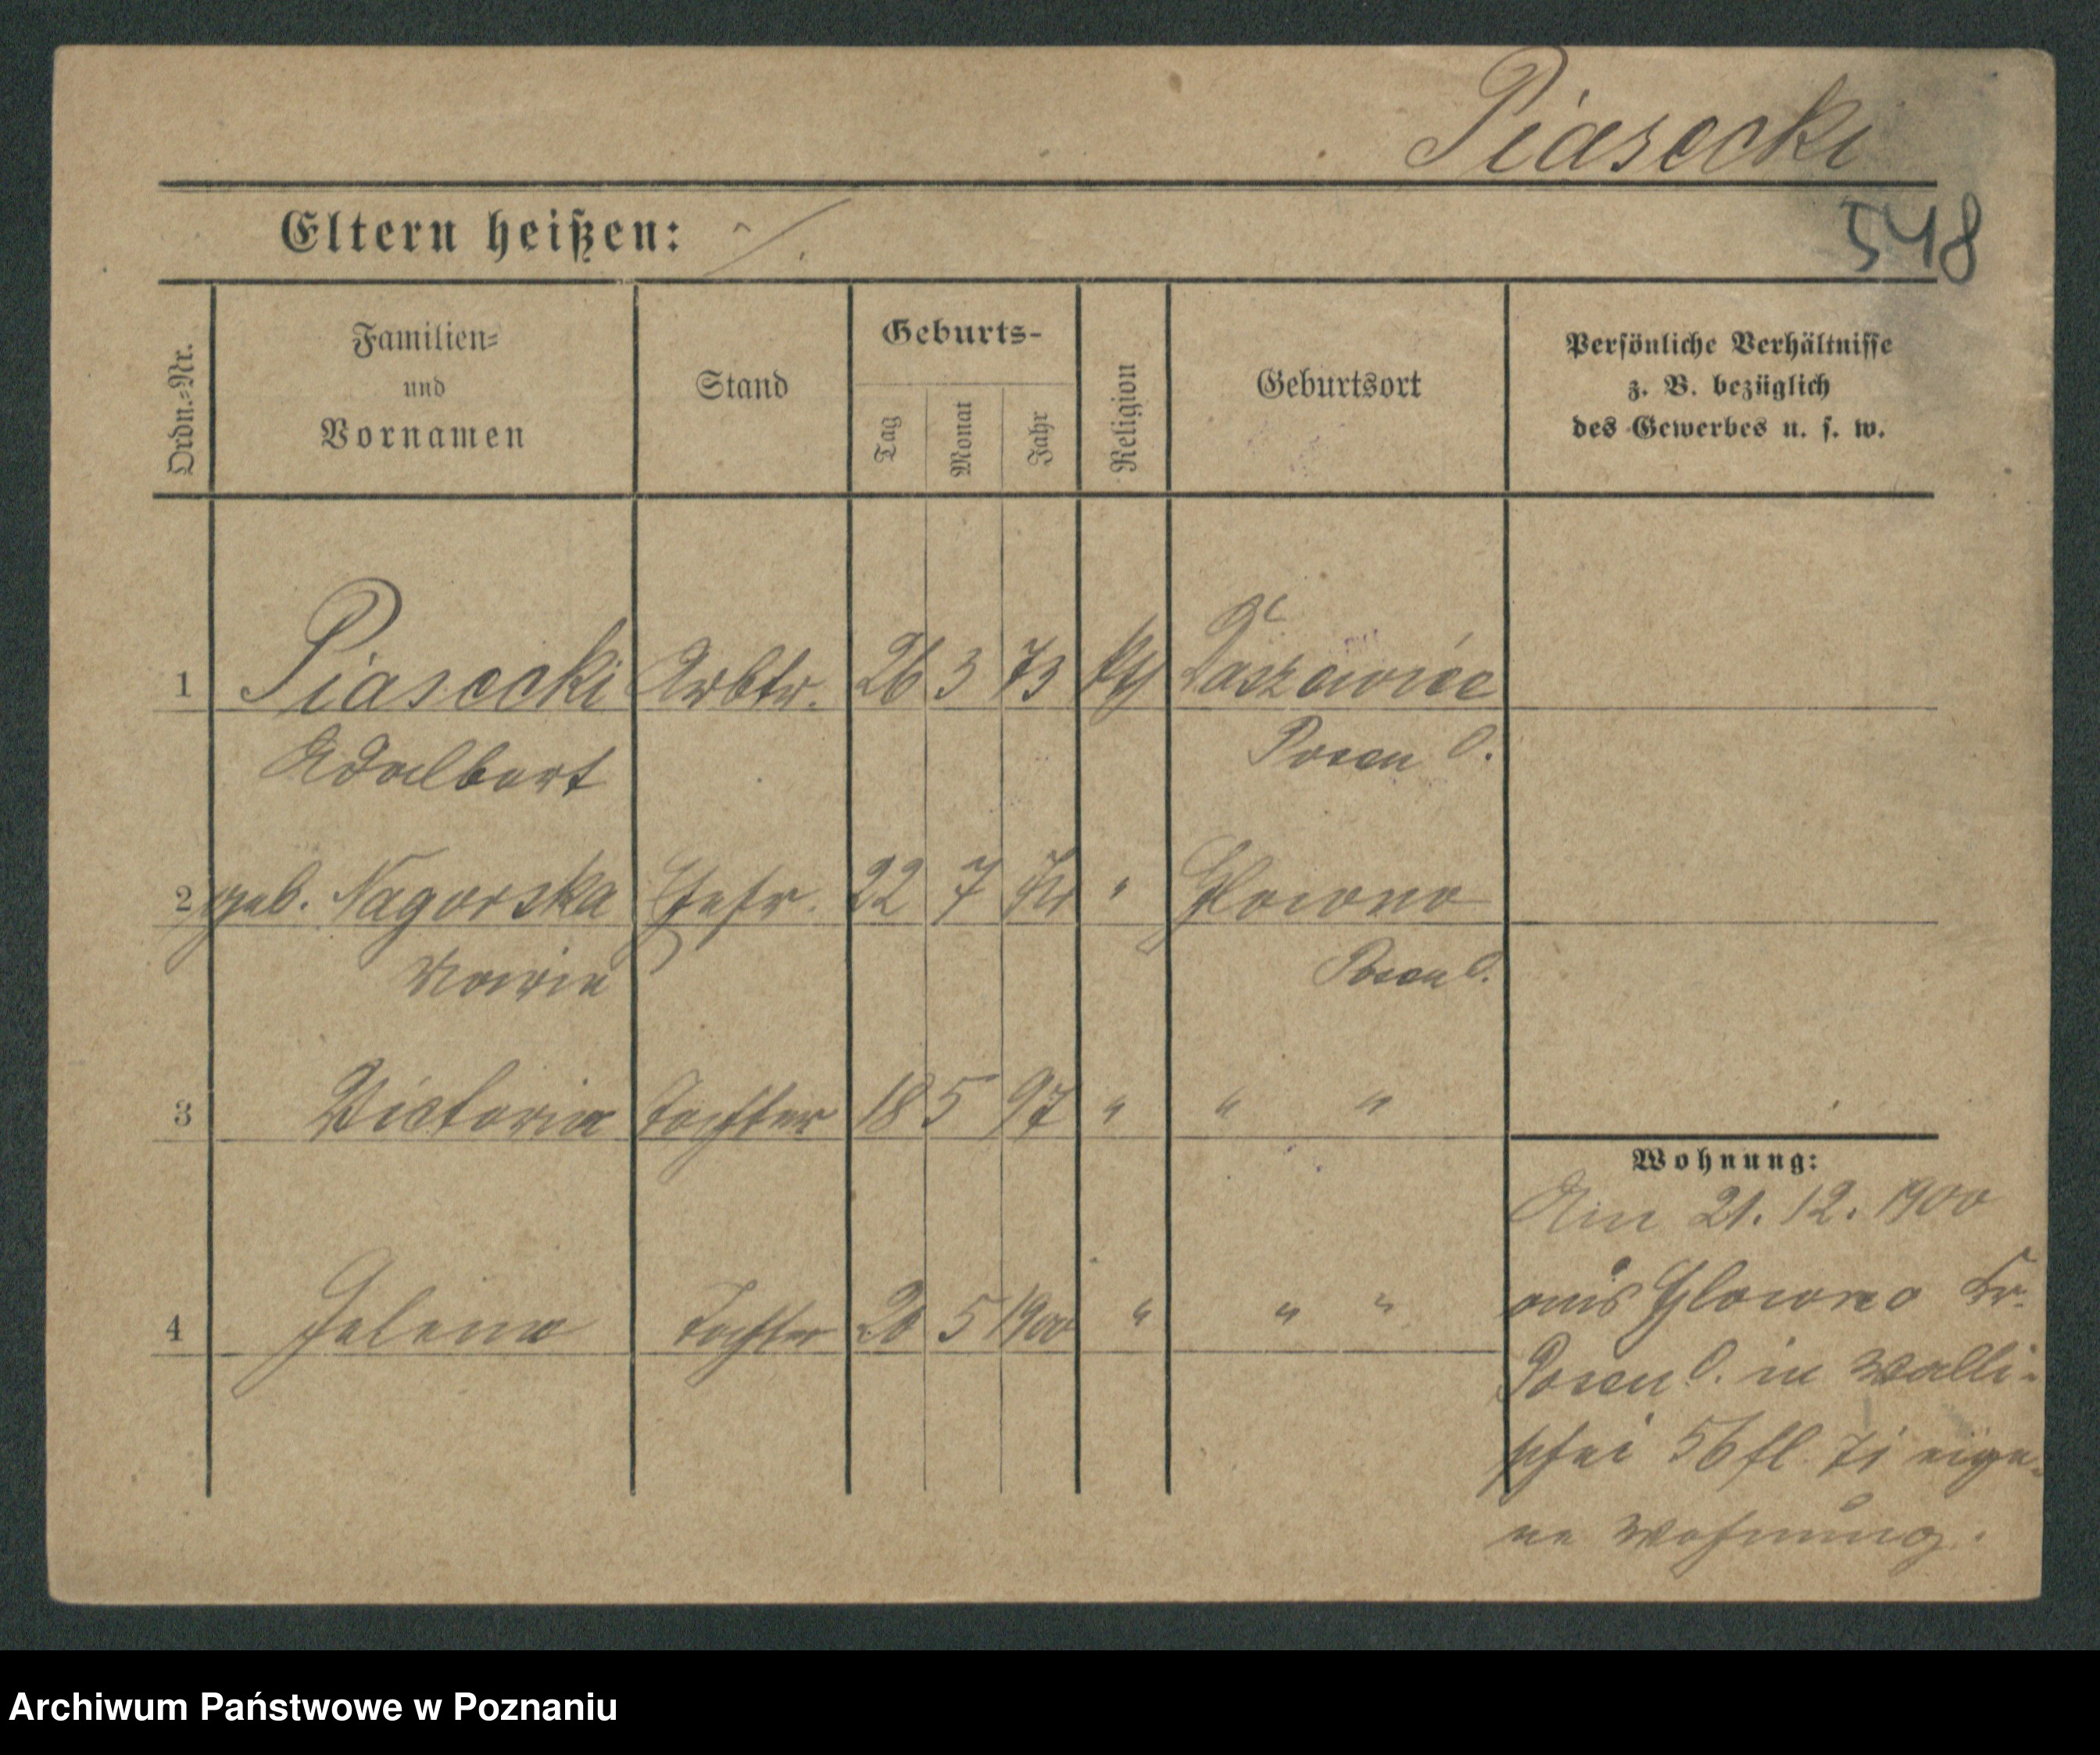 Piasecki
548
Eltern heißen: ./.
Ordn.-Nr.
Familien-
und
Vornamen
Stand
Geburts-
Tag
Monat
Jahr
Religion
Geburtsort
Persönliche Verhältnisse
z. B. bezüglich
des Gewerbes u. s. w.
1 Piasecki Arbtr. 26 3 73 kth
Adalbert Posen O.
2 geb. Nagorska Ehefr. 22 7 " Glowno
Maria Posen O.
3 Victoria Tochter 18 5 97 " " "
4 Helena Tochter 20 5 1900 " " "
Wohnung:
Am 21. 12. 1900
aus Glowno Kr.
Posen O. in Walli-
schei 56 fl. Ti eige-
ne Wohnung.
Archiwum Państwowe w Poznaniu